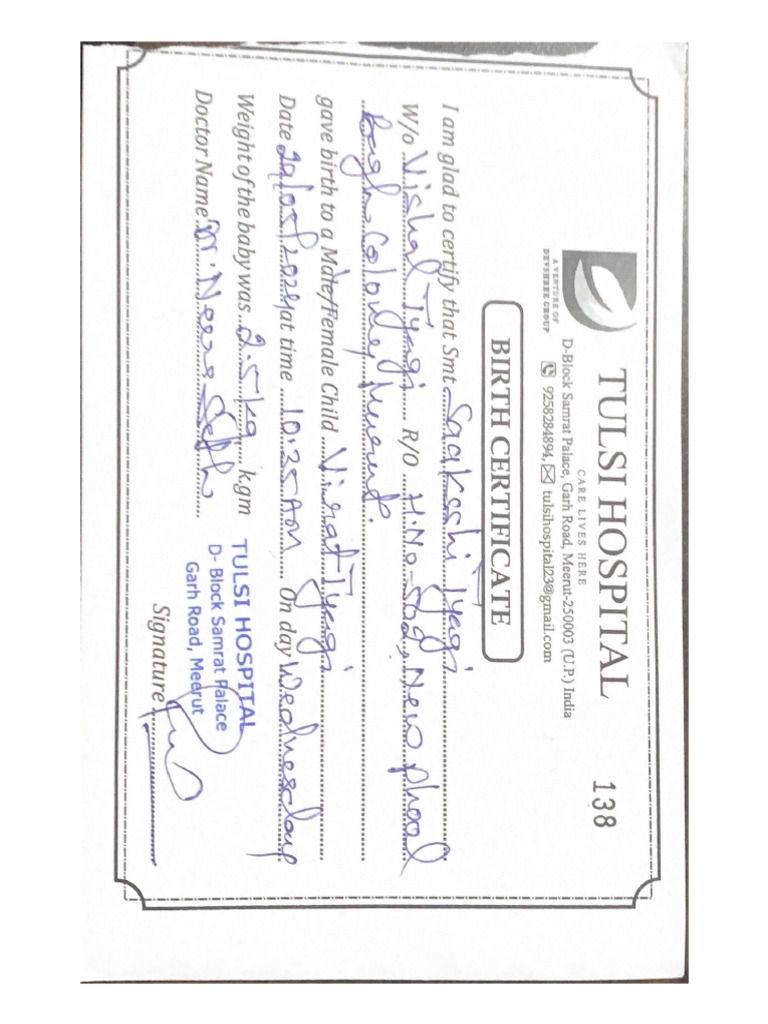 138
TULSI HOSPITAL
CARE LIVES HERE
A VENTURE OF
DEVSHREE GROUP
D-Block Samrat Palace, Garh Road, Meerut-250003 (U.P.) India
9258284894, tulsihospital23@gmail.com
BIRTH CERTIFICATE
I am glad to certify that Smt. Saakshi Tyagi
W/o Vishal Tyagi R/O H.No. New phool
Bagh Coloney Meerut.
gave birth to a Male/Female Child Virat Tyagi
Date 29/05/2024 at time 10:25 AM On day Wednesday
Weight of the baby was 2.5 kg kgm
Doctor Name Dr Neera
TULSI HOSPITAL
D- Block Samrat Palace
Garh Road, Meerut
Signature